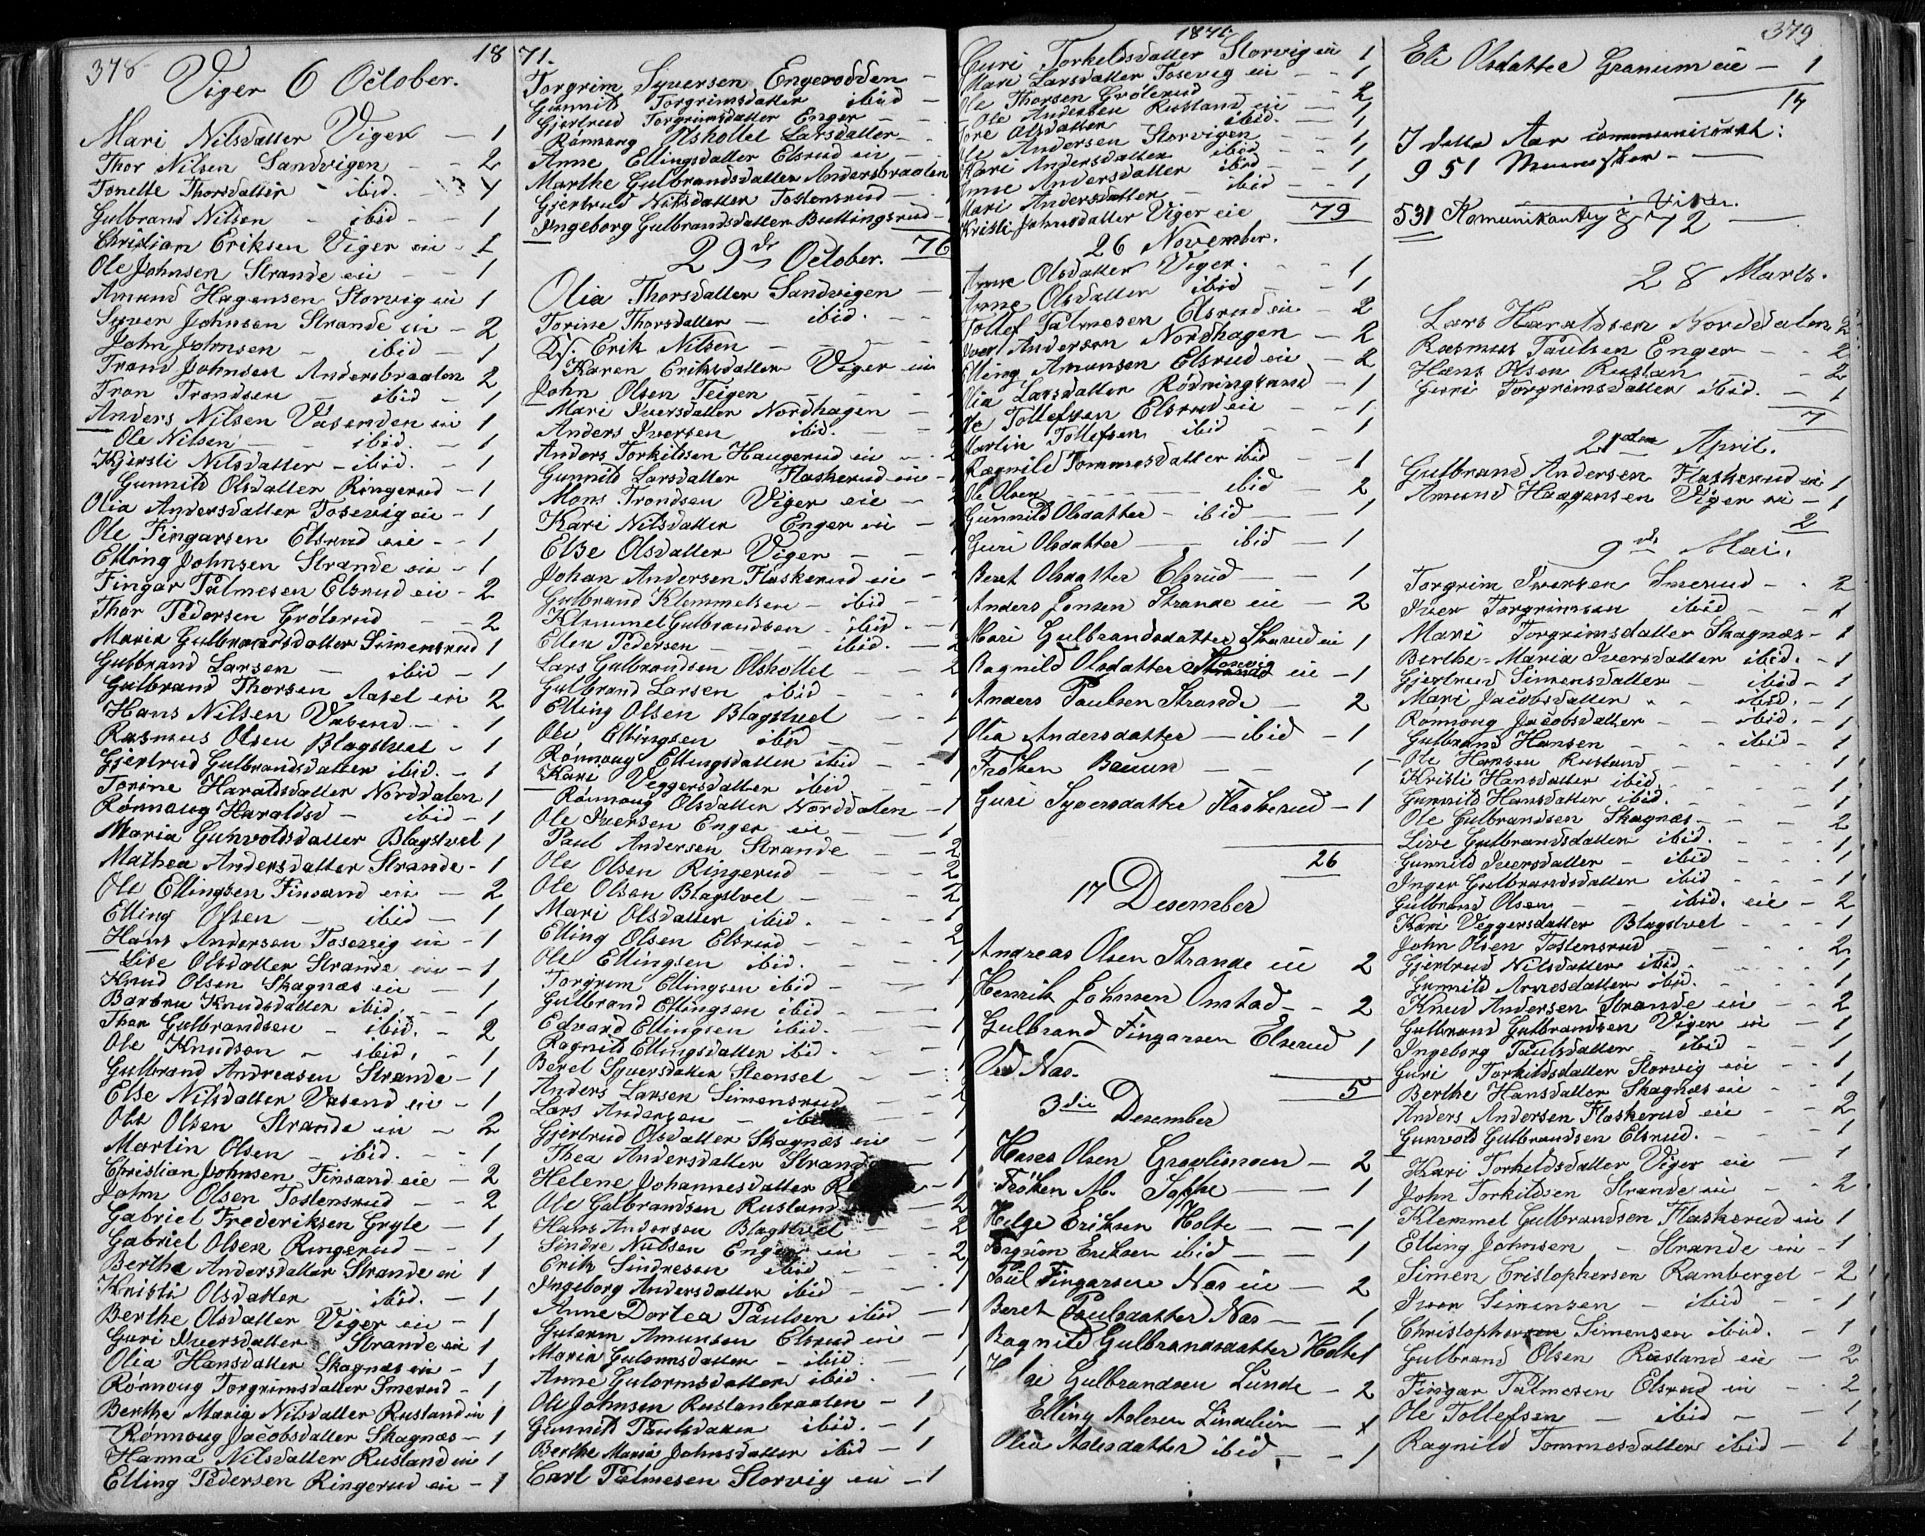 378
1871.
Viger 6 October.
Mari Nilsdatter Viger — 1
Thor Nilsen Sandvigen - - 2
Tonette Thorsdatter - ibid.
Gulbrand Nilsen - ibid - - 1
Christian Eriksen Viger eie - 1
Ole Johnsen Strande eie - - 1
Amund Hagensen Storvig eie 1
Syver Johnsen Strande eie - 2
John Johnsen - ibid - 1
Trond Johnsen Andersbraaten 2
Tron Trondsen - ibid - 1
Anders Nilsen Vasenden eie 1
Ole Nilsen - - ibid. - 1
Kjersti Nilsdatter - ibid. - 1
Gunnild Olsdatter Ringerud - 1
Olia Andersdatter Tosevig eie - 1
Ole Fingarsen Elsrud eie - - 1
Elling Johnsen Strande eie - 1
Fingar Palmesen Elsrud eie - 2
Thor Pedersen Grölerud - - 2
Maria Gulbrandsdatter Simensrud 1
Gulbrand Larsen - ibid - 1
Gulbrand Thorsen Aasel eie 2
Hans Nilsen Vasend - - 1
Rasmus Olsen Blagstvet - 1
Gjertrud Gulbrandsdatter ibid. - 1
Torine Haraldsdatter Norddalen 1
Rønnaug Haraldsd - ibid - 1
Maria Gunvoldsdatter Blagstvet 1
Mathea Andersdatter Strande - 1
Ole Ellingsen Finsand eie - 2
Elling Olsen - ibid - 1
Hans Andersen Tosevig eie - 1
Live Olsdatter Strande eie - 1
Knud Olsen Skagnæs eie - 1
Barbru Knudsdatter ibid. - - 1
Thor Gulbrandsen - ibid. - 2
Ole Knudsen - ibid. - 1
Gulbrand Andreasen Strande - 1
Else Nilsdatter Vasend eie - 1
Ole Olsen Strande eie - 2
Martin Olsen - ibid. - - 1
Christian Johnsen Finsand eie - 2
John Olsen Tostensrud - 2
Gabriel Frederiksen Gryte - 1
Gabriel Olsen Ringerud - - 1
Berthe Andersdatter Strande eie 1
Kristi Olsdatter - ibid. - 1
Berthe Olsdatter Viger eie - 1
Guri Iversdatter Strande eie 1
Olia Hansdatter Skagnæs eie - 1
Rønnoug Torgrimsdatter Smerud - 1
Berthe Maria Nilsdatter Rustand eie 1
Rønnoug Jacobsdatter Skagnæs - 1
Hanna Nilsdatter Rustand eie 1
Elling Pedersen Ringerud eie - 1
Torgrim Syversen Engerodden -
Gunnild Torgrimsdatter ibid -
Gjertrud Torgrimsdatter Enger - -
Rønnoug Olshollet Larsdatter -
Anne Ellingsdatter Elsrud eie -
Marthe Gulbrandsdatter Andersbraaten
Gjertrud Nilsdatter Tostensrud -
Ingeborg Gulbrandsdatter Buttingsrud -
76
29de October.
Olia Thorsdatter Sandvigen -
Torine Thorsdatter - ibid. - -
Erik Nilsen - - -
Karen Eriksdatter Viger eie
John Olsen Teigen - -
Mari Iversdatter Nordhagen -
Anders Iversen ibid. -
Anders Torkildsen Haugerud eie - 2
Gunnild Larsdatter Flaskerud eie -
Mons Trondsen Viger eie -
Kari Nilsdatter Enger eie -
Else Olsdatter Viger - -
Johan Andersen Flaskerud eie -
Gulbrand Klemmetsen - ibid -
Klemmet Gulbrandsen - ibid. -
Ellen Pedersen - ibid. -
Lars Gulbrandsen Olshollet - 2
Gulbrand Larsen ibid - - 1
Elling Olsen Blagstvet - - 1
Ole Ellingsen ibid - - 1
Rønnoug Ellingsdatter ibid - - 1
Kari Veggersdatter ibid - 1
Rønnoug Olsdatter Norddalen - 1
Ole Iversen Enger eie - 1
Paul Andersen Strande - 2
Ole Olsen Ringerud - - 2
Ole Olsen Blagstvet - - 2
Mari Olsdatter ibid. - - 1
Elling Olsen Elsrud - - 2
Ole Ellingsen ibid. - - 1
Torgrim Ellingsen ibid - - 1
Gulbrand Ellingsen ibid - - 1
Edvard Ellingsen ibid. - - 1
Ragnild Ellingsdatter ibid. - - 1
Beret Syversdatter Steensel - 1
Anders Larsen Simensrud - 2
Lars Andersen - ibid - 1
Gjertrud Olsdatter Skagnæs eie - 1
Thea Andersdatter Strande - 1
Helene Johannesdatter - 1
Ole Gulbrandsen Rustand - 2
Hans Andersen Blagstvet - 2
Sindre Nielsen Enger eie - - 2
Erik Sindresen ibid - - 1
Ingeborg Andersdatter ibid - - 1
Anne Dortea Paulsen ibid - 1
Gutorm Amundsen Elsrud eie - 1
Maria Gutormsdatter - ibid. - 1
Anne Gutormsdatter ibid. - 1
Ole Johnsen Rustanbraaten - 1
Gunnild Paulsdatter ibid. - 1
Berthe Maria Johnsdatter ibid - 1
Carl Palmesen Storvig eie - 1
1871.
Guri Torkeldsdatter Storvig eie 1
Mari Larsdatter Tosevig eie - - 1
Ole Thorsen Grölerud - - 2
Ole Andersen Rustand eie - 1
Tore Olsdatter ibid. - 1
Ole Andersen Storvigen - - 1
Kari Andersdatter ibid - - 1
Anne Andersdatter ibid - - 1
Mari Andersdatter - ibid - - 1
Kristi Johnsdatter Viger eie 79
26 November.
Anne Olsdatter Viger. - - 1
Anne Olsdatter ibid - - 1
Tollef Palmesen Elsrud eie - 2
Iver Andersen Nordhagen - 2
Elling Amunsen Elsrud eie - 2
Olia Larsdatter Rødningsand - 1
Ole Tollefsen Elsrud eie - - 1
Martin Tollefsen ibid - - 1
Ragnild Tommesdatter ibid - 1
Ole Olsen - - - ibid 2
Gunnild Olsdatter - ibid - 1
Guri Olsdatter - ibid - 1
Beret Olsdatter Elsrud - - 1
Anders Jonsen Strande eie - 2
Mari Gulbrandsdatter Skarud eie 1
Ragnild Olsdatter Storvig eie - 1
Anders Paulsen Strande - 2
Olia Andersdatter - ibid - 1
Frøken Bruun - 1
Guri Syversdatter Flaskerud - 1
26
17 Desember
Andreas Olsen Strande eie 2
Henrik Johnsen Onstad - 2
Gulbrand Fingarsen Elserud 1
Ved Nas. 5
3die Desember
Hans Olsen - 2
Frøken M. - 1
Helge Eriksen Holte - - - 1
Torgrim Eriksen ibid - - 1
Poul Fingarsen Nas eie - 2
Beret Poulsdatter Nas - - 1
Ragnild Gulbrandsdatter Holte 1
Helge Gulbrandsen Lunde - 2
Elling Asle­sen Lindelien - 1
Olia Aslesdatter ibid - - 1
379
Eli Olsdatter Granum eie - 1
14
I dette Aar communiceret:
951 Mennesker -
531 Komunikanter i Viker.
1872
28 Marts.
Lars Haraldsen Norddalen 2
Rasmus Paulsen Enger - - 2
Hans Olsen Rustan - 2
Guri Torgrimsdatter ibid. - 1
7
2den April.
Gulbrand Andersen Flaskerud eie 1
Amund Haagensen Viger eie - 1
2
9de Mai.
Torgrim Iversen Smerud - - 2
Iver Torgrimsen ibid - - 1
Mari Torgrimsdatter Skagnæs - 1
Berthe-Maria Iversdatter ibid. - 1
Gjertrud Simensdatter - ibid - 1
Mari Jacobsdatter - - ibid. - 1
Rønnoug Jacobsdatter - - ibid. - 1
Gulbrand Hansen - - - ibid - 1
Ole Hansen Rustand - - - 1
Kristi Hansdatter ibid. - - - 1
Gunnild Hansdatter ibid. - - 1
Ole Gulbrandsen Skagnæs - - - 2
Live Gulbrandsdatter ibid. - - 1
Gunnild Iversdatter - ibid - - 1
Inger Gulbrandsdatter ibid - - 1
Gulbrand Olsen - - ibid. eie - 2
Kari Veggersdatter Blagstvet - - 1
John Olsen Tostensrud - - - 2
Gjertrud Nilsdatter ibid. - - 1
Gunnild Arnesdatter ibid. - - 1
Knud Andersen Strande eie - - 2
Gulbrand Gulbrandsen Viger eie - 1
Ingeborg Paulsdatter - ibid - - 1
Guri Torkildsdatter Storvig eie - - 1
Berthe Hansdatter Skagnæs eie - - 1
Anders Andersen Flaskerud eie - - 2
Gunvold Gulbrandsen Elsrud. - - 1
Kari Torkeldsdatter Viger eie - - 1
John Torkildsen Strande eie - - 2
Klemmet Gulbrandsen Flaskerud eie 1
Elling Johnsen - Strande eie - 1
Simen Cristophersen Ramberget - 2
Iver Simensen - ibid - - 1
Christophersen Simensen ibid. 1
Gulbrand Olsen Rustand eie - 2
Fingar Palmesen Elsrud eie - - 2
Ole Tollefsen - ibid - - 1
Ragnild Tommesdatter ibid - 1